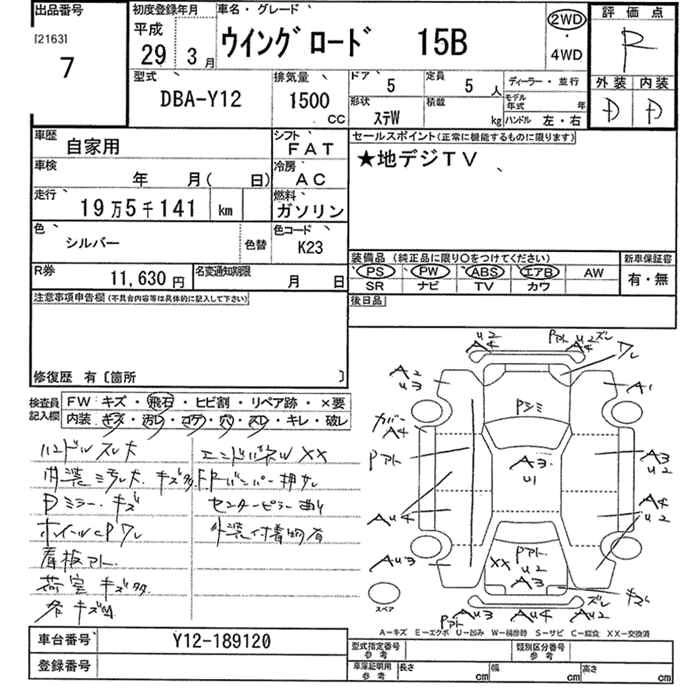 出品番号
[2163]
7
初度登録年月
平成
29年3月
車名・グレード
ウイングロード 15B
2WD
・
4WD
評価点
R
外装 内装
D D
型式
DBA-Y12
排気量
1500
CC
ドア
5
定員
5人
形状
ステW
積載
kg
ディーラー・並行
モデル年式 年
ハンドル 左・右
車歴
自家用
シフト
FAT
車検
年 月( 日)
冷房
AC
走行
19万5千141 km
燃料
ガソリン
色
シルバー
色替
色コード
K23
R券
11,630円
名変通知期限
月 日
セールスポイント(正常に機能するものに限ります)
★地デジTV
装備品 (純正品に限り○をつけてください)
PS PW ABS エアB AW
SR ナビ TV カワ
新車保証書
有・無
後日品
注意事項申告欄(不具合内容等は具体的に記入して下さい)
修復歴 有〔箇所 〕
検査員記入欄
FW キズ・飛石・ヒビ割・リペア跡・×要
内装 キズ・汚レ・コゲ・穴・スレ・キレ・破レ
ハンドルスレ大
エンドパネルXX
内装ミラレス、キズ多
F,Rバンパー押サレ
Dミラーキズ
センターピラー曲り
ホイールCPワレ
外装付着物有
看板アト
荷室キズ多
U2
A4
Pアト
U2
A4
ズレ
ワレ
A2
U3
A1
カバー
A4
Pアト
Pシミ
A3
U1
A3
U2
AU4
A4
U2
AU3
Pアト
U2
XX
A3
キズ
スペア
Pアト
AU3
AU4
ズレ
AU2
A−キズ E−エクボ U−凹み W−補修跡 S−サビ C−腐食 XX−交換済
車台番号
Y12-189120
登録番号
型式指定番号
参考
類別区分番号
参考
車庫証明用
参考
長さ cm
幅 cm
高さ cm